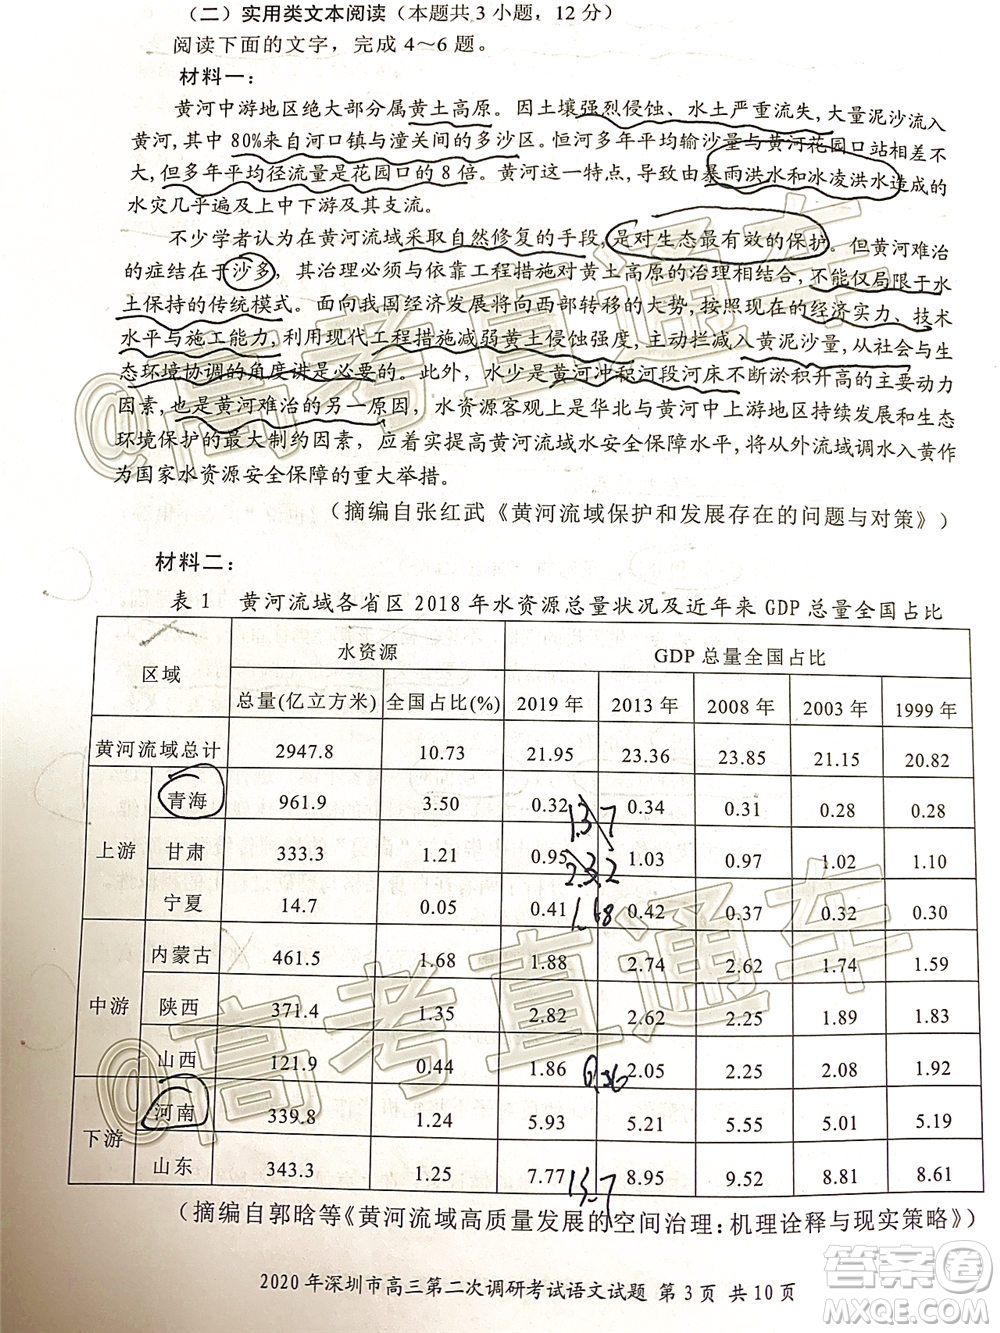 （二）实用类文本阅读（本题共3小题，12分）
阅读下面的文字，完成4～6题。
材料一：
黄河中游地区绝大部分属黄土高原。因土壤强烈侵蚀、水土严重流失，大量泥沙流入
黄河，其中80%来自河口镇与潼关间的多沙区。恒河多年平均输沙量与黄河花园口站相差不
大，但多年平均径流量是花园口的8倍。黄河这一特点，导致由暴雨洪水和冰凌洪水造成的
水灾几乎遍及上中下游及其支流。
不少学者认为在黄河流域采取自然修复的手段，是对生态最有效的保护。但黄河难治
的症结在于沙多，其治理必须与依靠工程措施对黄土高原的治理相结合，不能仅局限于水
土保持的传统模式。面向我国经济发展将向西部转移的大势，按照现在的经济实力、技术
水平与施工能力，利用现代工程措施减弱黄土侵蚀强度，主动拦减入黄泥沙量，从社会与生
态环境协调的角度讲是必要的。此外，水少是黄河冲积河段河床不断淤积升高的主要动力
因素，也是黄河难治的另一原因，水资源客观上是华北与黄河中上游地区持续发展和生态
环境保护的最大制约因素，应着实提高黄河流域水安全保障水平，将从外流域调水入黄作
为国家水资源安全保障的重大举措。
（摘编自张红武《黄河流域保护和发展存在的问题与对策》）
材料二：
表1 黄河流域各省区2018年水资源总量状况及近年来GDP总量全国占比
区域 水资源 GDP总量全国占比
总量(亿立方米) 全国占比(%) 2019年 2013年 2008年 2003年 1999年
黄河流域总计 2947.8 10.73 21.95 23.36 23.85 21.15 20.82
上游 青海 961.9 3.50 0.32 0.34 0.31 0.28 0.28
甘肃 333.3 1.21 0.95 1.03 0.97 1.02 1.10
宁夏 14.7 0.05 0.41 0.42 0.37 0.32 0.30
中游 内蒙古 461.5 1.68 1.88 2.74 2.62 1.74 1.59
陕西 371.4 1.35 2.82 2.62 2.25 1.89 1.83
山西 121.9 0.44 1.86 2.05 2.22 2.08 1.92
下游 河南 339.8 1.24 5.93 5.21 5.55 5.01 5.19
山东 343.3 1.25 7.77 8.95 9.52 8.81 8.61
（摘编自郭晗等《黄河流域高质量发展的空间治理：机理诠释与现实策略》）
2020年深圳市高三第二次调研考试语文试题 第3页 共10页
@高考直通车
@高考直通车
作业帮